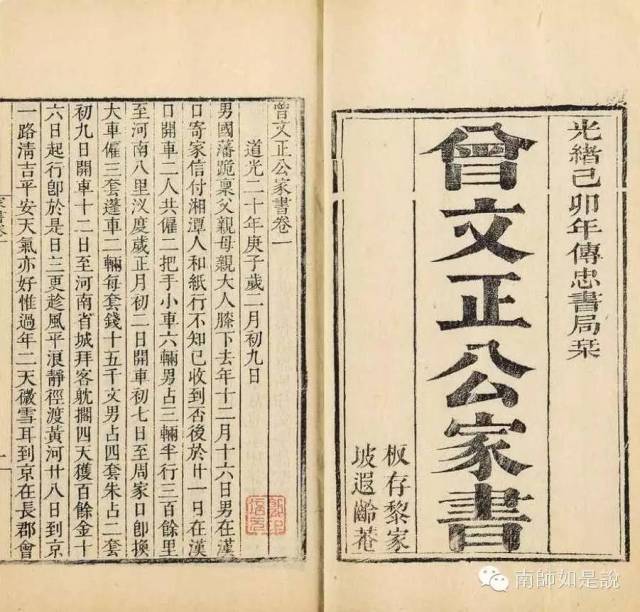 光緒己卯年傳忠書局栞
曾文正公家書
板存黎家
坡遐齡菴
曾文正公家書卷一
道光二十年庚子歲二月初九日
男國藩跪稟父親母親大人膝下去年十二月十六日男在漢
口寄家信付湘潭人和紙行不知已收到否後於廿一日在漢
口開車二人共僱二把手小車六輛男占三輛半行三百餘里
至河南八里汊度歲正月初二日開車初七日至周家口卽換
大車僱三套篷車二輛每套錢十五千文男占四套朱占二套
初九日開車十二日至河南省城拜客躭擱四天獲百餘金十
六日起行卽於是日三更趁風平浪靜徑渡黃河廿八日到京
一路清吉平安天氣亦好惟過年二天微雪耳到京在長郡會
南師如是說